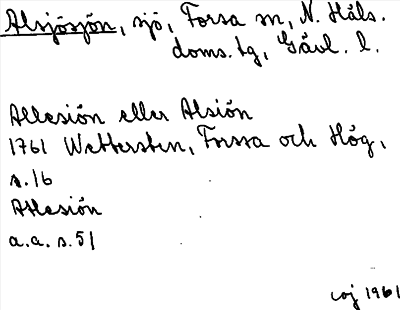 Alsjösjön, sjö, Forsa sn, N. Häls.
doms. tg, Gävl. l.
Allesiön eller Alsiön
1761 Wettersten, Forssa och Hög,
s. 16
Allesiön
a.a. s. 51
coj 1961